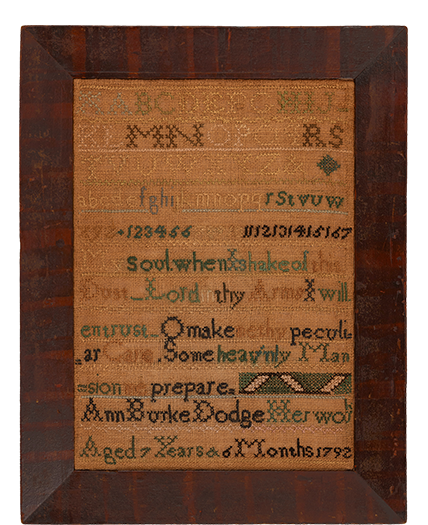 AABC DEFG HIJ
KL MN OPQ RS
abcde fghi klmnopq rstvuw
123456 11121314151617
My soul when I shake of this
Dust Lord in thy Arms I will
entrust O make me thy peculi
=ar Care Some heavnly Man
=sion me prepare=
Ann Burke Dodge Her
Aged 7 Years & 6 Months 1792